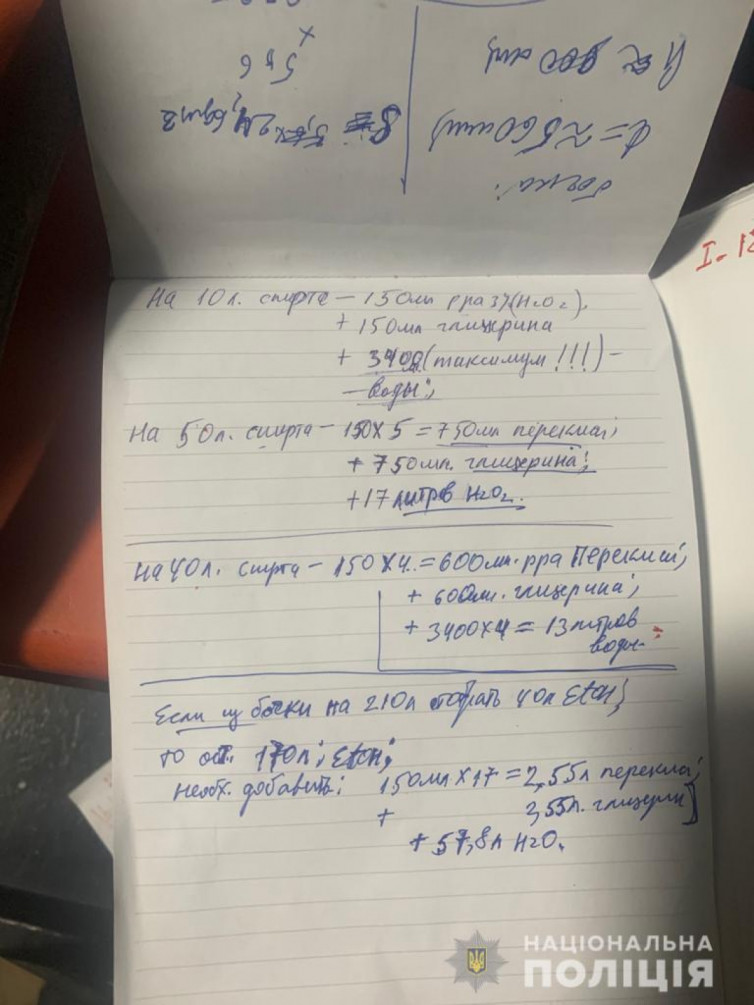 бочка:
d = ≈ 560мм)
h ≈ 900мм)
546
×
На 10л. спирта – 150мл рра 3%(H2O2).
+ 150мл глицерина
+ 3400(таксимум!!!) –
– воды;
На 50л. спирта – 150х5 = 750мл перекиси;
+ 750мл. глицерина;
+ 17 литров H2O2.
На 40л. спирта – 150х4. = 600мл. рра Перекиси;
+ 600мл. глицерина;
+ 3400х4 = 13литров
воды.
Если из бочки на 210л отобрать 40л EtOH;
то ост. 170л; EtOH;
необх. добавить: 150мл х 17 = 2,55л перекиси;
+ 2,55л. глицерин
+ 57,8л H2O.
I-
НАЦІОНАЛЬНА
ПОЛІЦІЯ